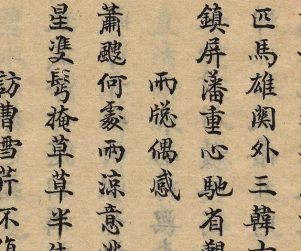 匹馬雄関外三韓
鎮屏藩重心馳省
雨牕偶感
蕭颼何處雨涼意
星雙鬢掩草草半
訪曹雪芹不